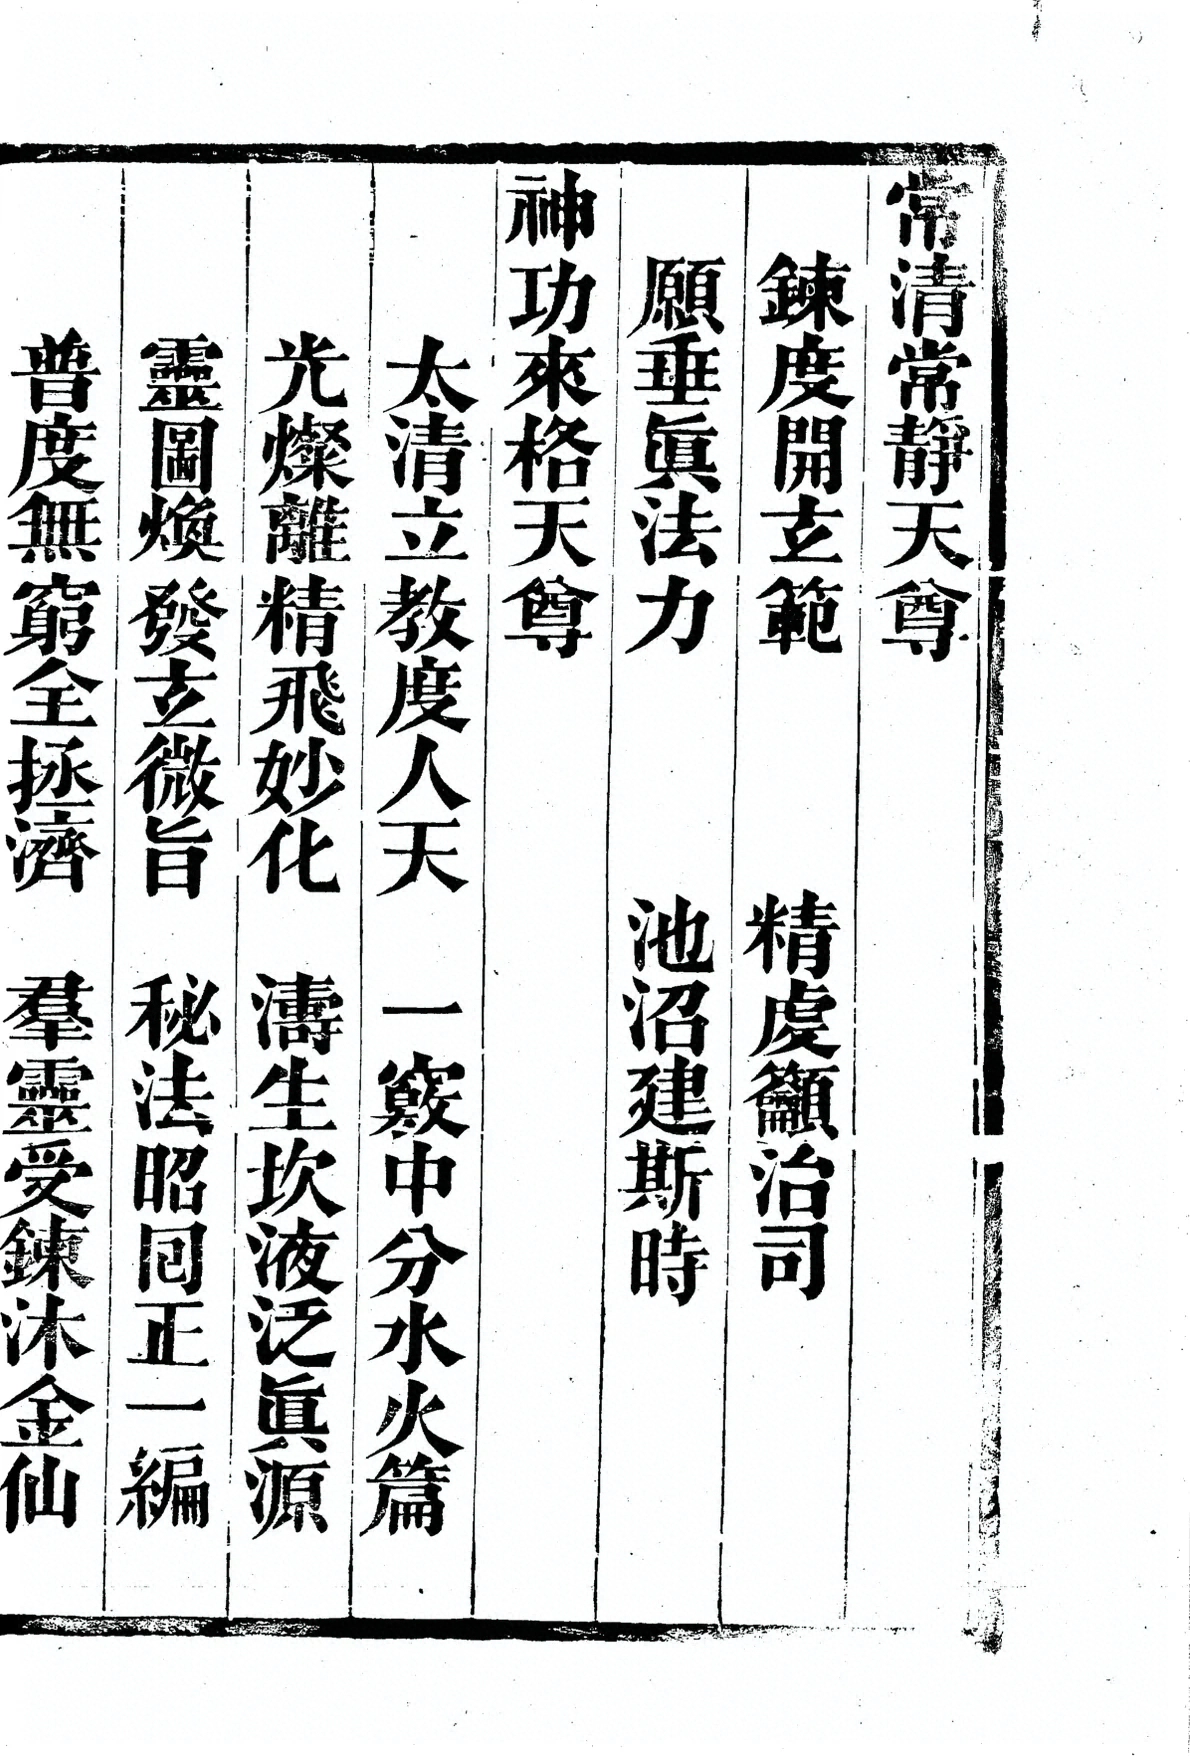 常清常靜天尊
鍊度開玄範　精虔籲治司
願垂眞法力　池沼建斯時
神功來格天尊
太清立教度人天　一竅中分水火篇
光燦離精飛妙化　濤生坎液泛眞源
靈圖煥發玄微旨　秘法昭囘正一編
普度無窮全拯濟　羣靈受鍊沐金仙